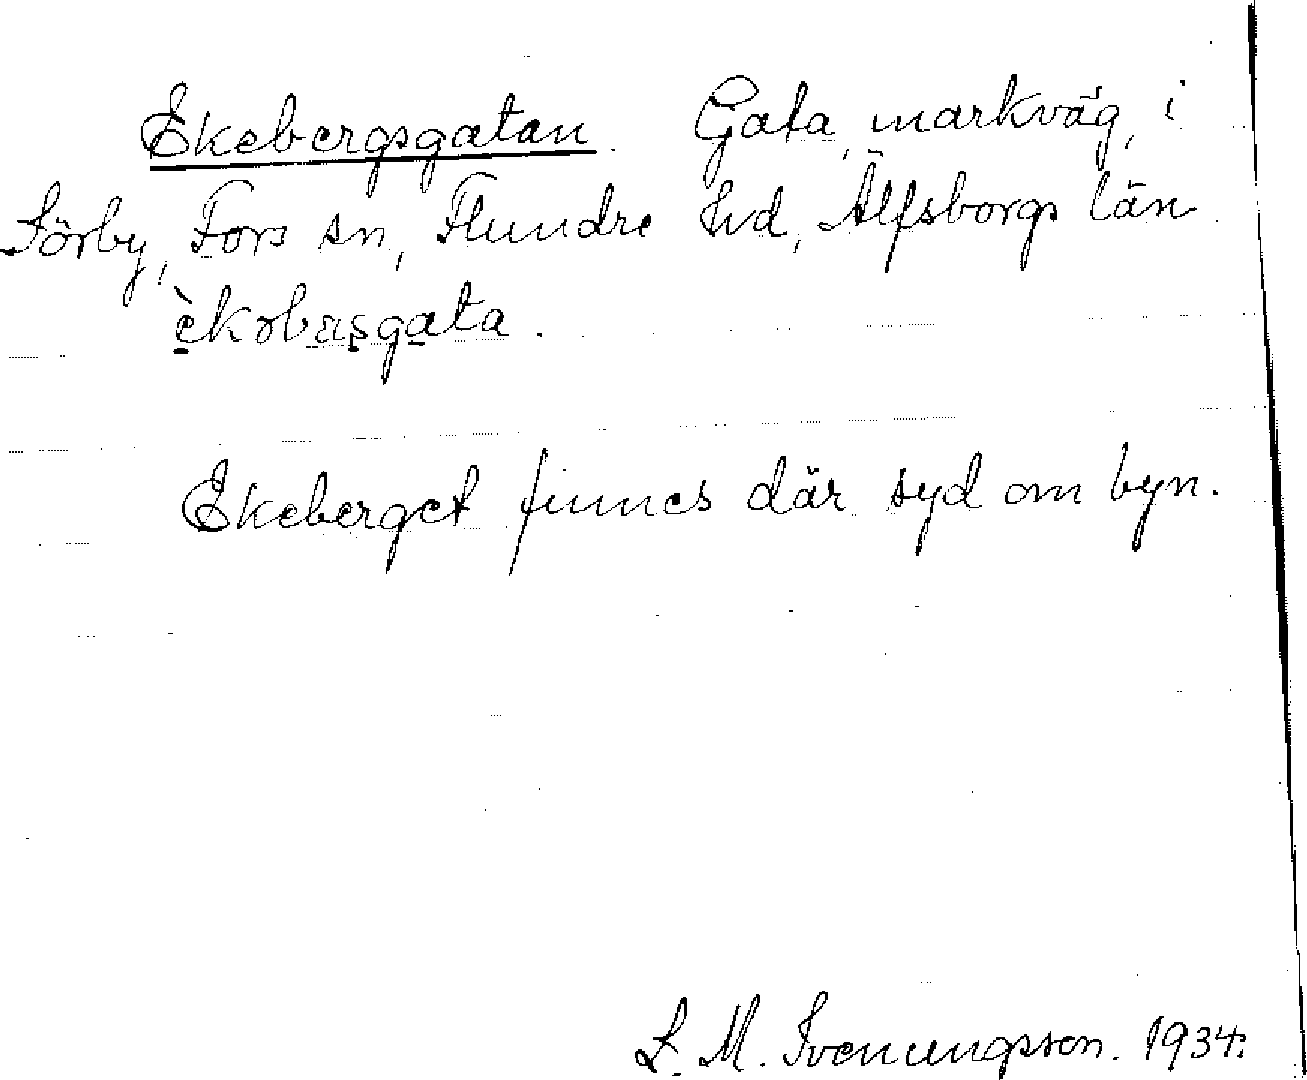 Ekebergsgatan. Gata, markväg, i
Sörby, Fors sn, Flundre hd, Älfsborgs län.
èkəbæsgata.
Ekeberget finnes där syd om byn.
L. M. Svenungsson. 1934.